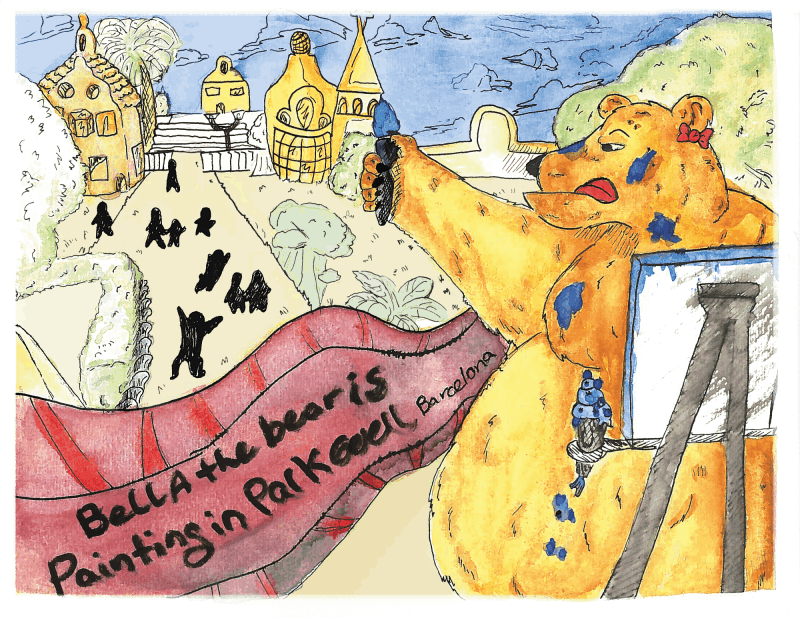 BellA the bear is
Painting in Park Güell, Barcelona